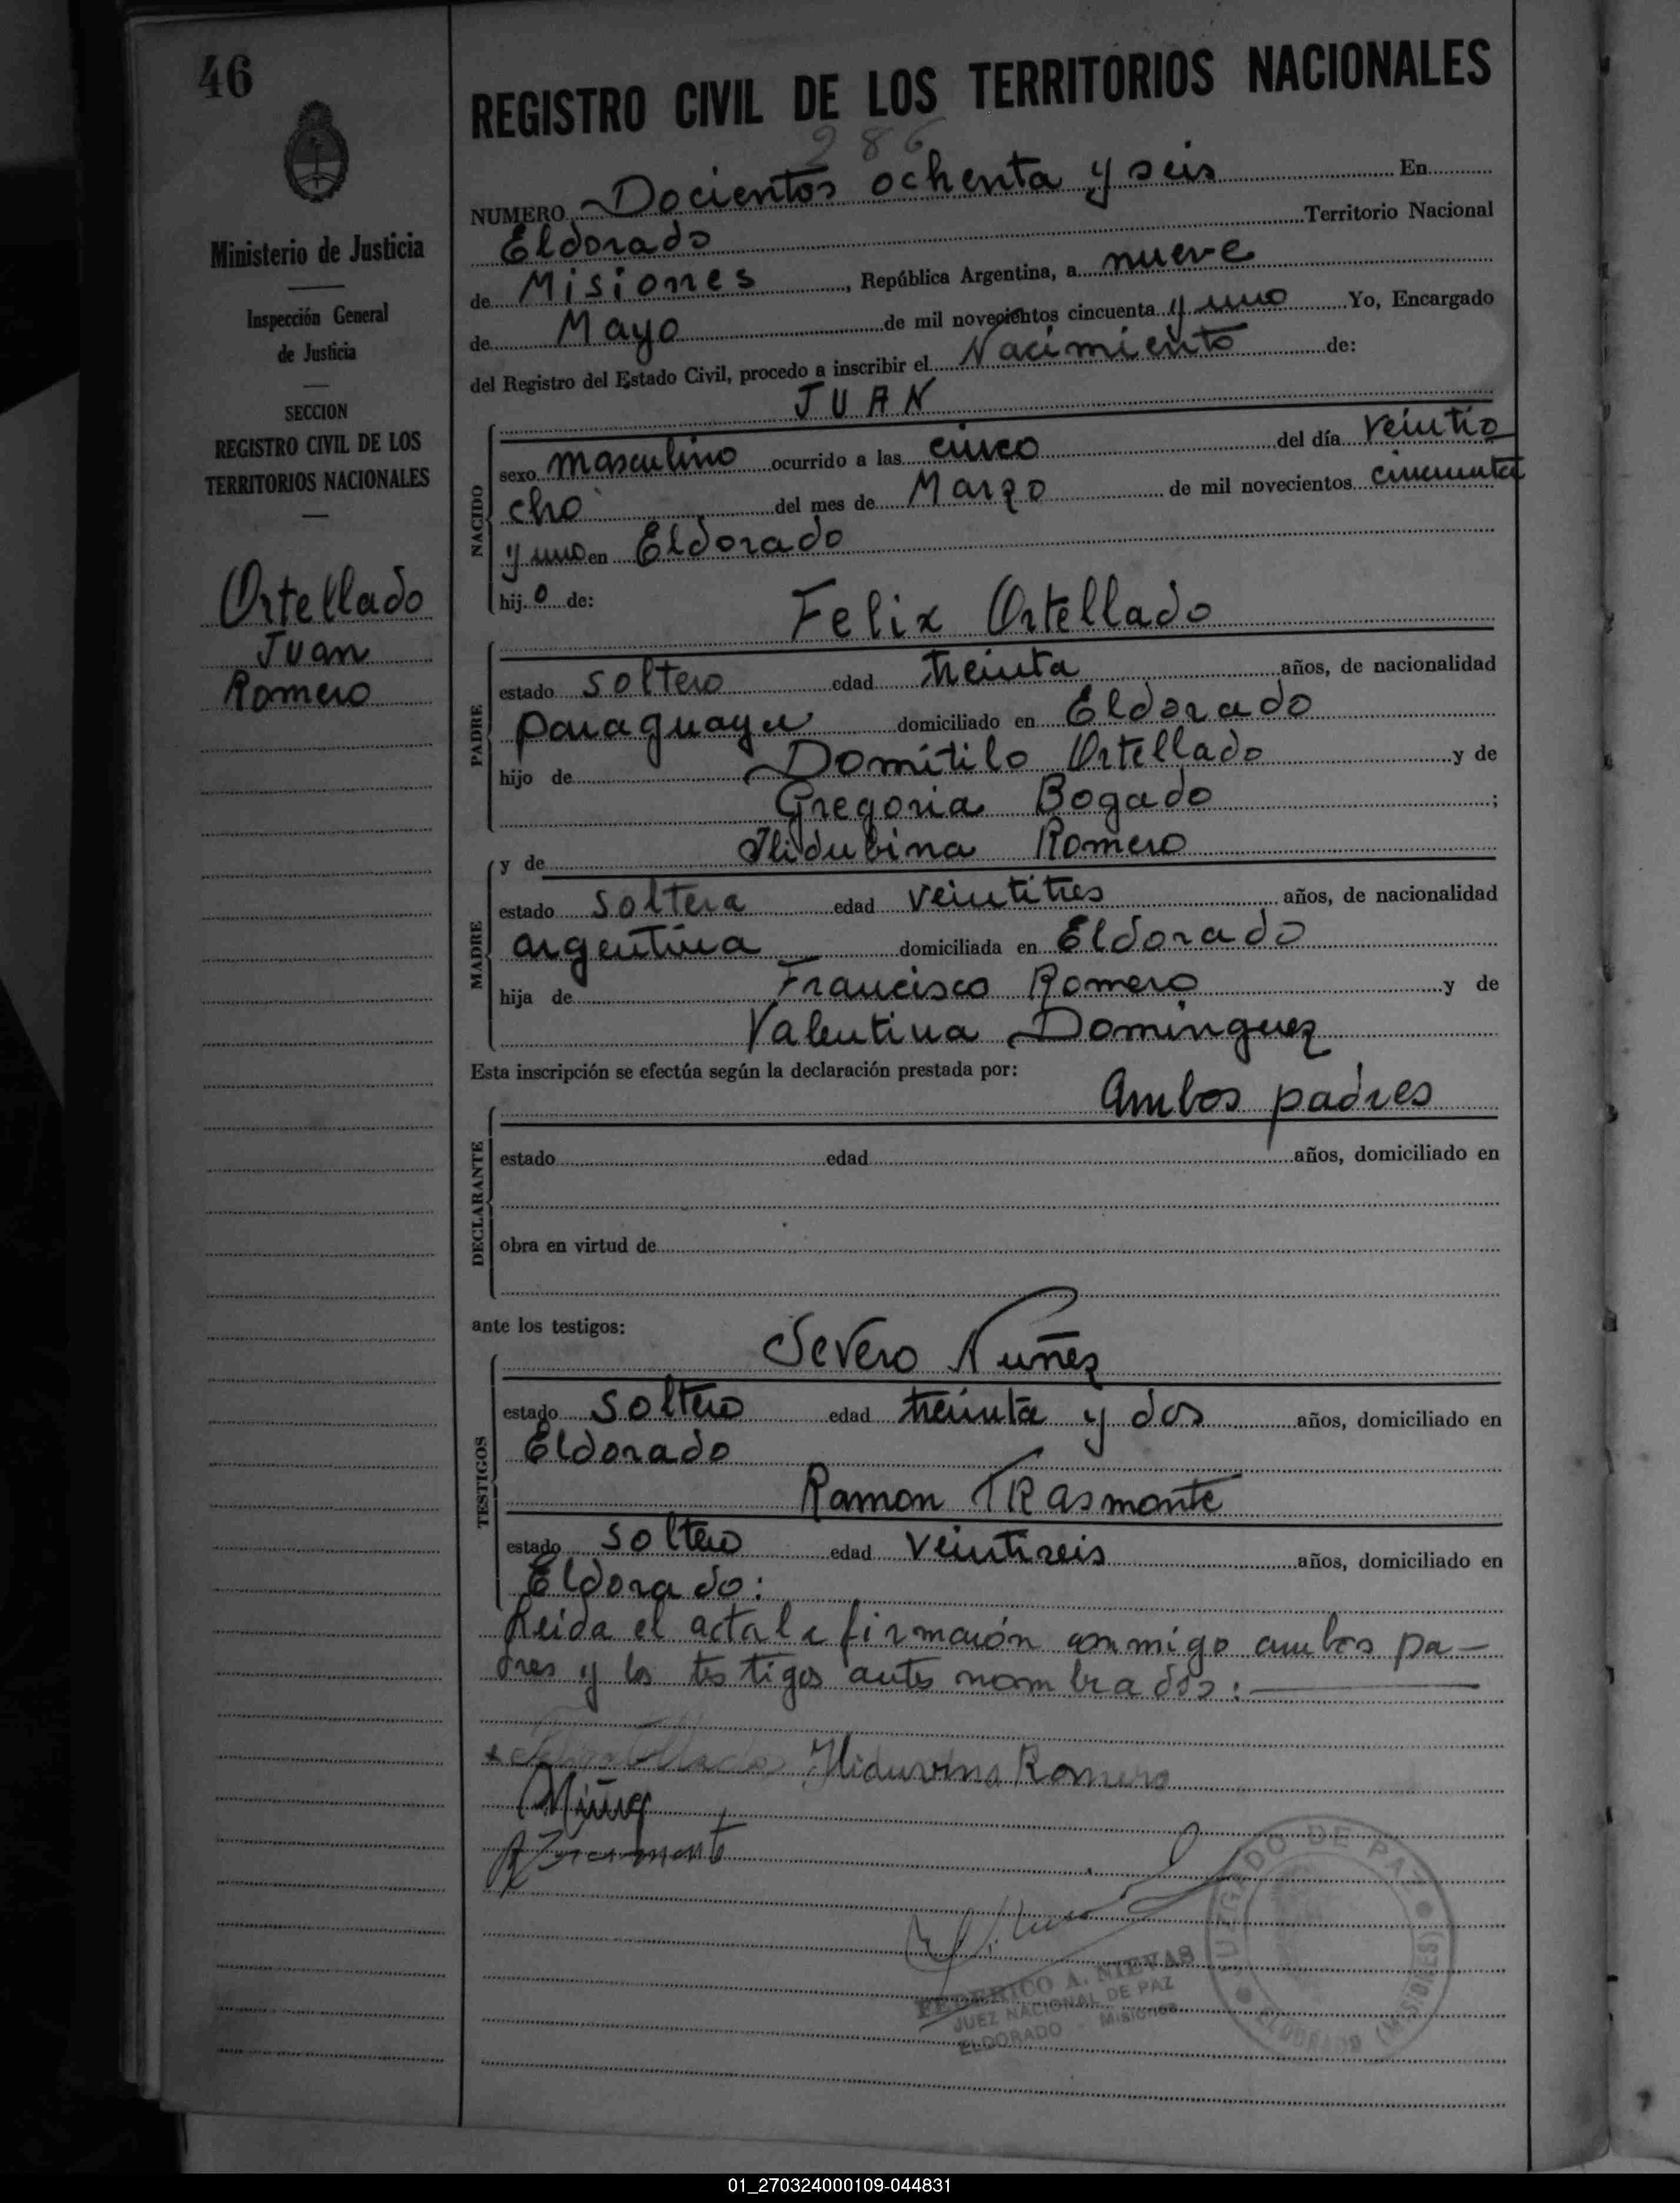 46
Ministerio de Justicia
Inspección General
de Justicia
SECCION
REGISTRO CIVIL DE LOS
TERRITORIOS NACIONALES
Ortellado
Juan
Romero
REGISTRO CIVIL DE LOS TERRITORIOS NACIONALES
286
NUMERO Docientos ochenta y seis En
Eldorado Territorio Nacional
de Misiones, República Argentina, a nueve
de Mayo de mil novecientos cincuenta y uno Yo, Encargado
del Registro del Estado Civil, procedo a inscribir el Nacimiento de:
JUAN
NACIDO
sexo masculino ocurrido a las cinco del día veintio
cho del mes de Marzo de mil novecientos cincuenta
y uno en Eldorado
hijo de: Felix Ortellado
PADRE
estado soltero edad treinta años, de nacionalidad
paraguaya domiciliado en Eldorado
hijo de Domitilo Ortellado y de
Gregoria Bogado ;
y de Ilidubina Romero
MADRE
estado soltera edad veintitres años, de nacionalidad
argentina domiciliada en Eldorado
hija de Francisco Romero y de
Valentina Dominguez
Esta inscripción se efectúa según la declaración prestada por:
Ambos padres
DECLARANTE
estado edad años, domiciliado en
obra en virtud de
ante los testigos:
Severo Nuñez
TESTIGOS
estado soltero edad treinta y dos años, domiciliado en
Eldorado
Ramon TRasmonte
estado soltero edad veintiseis años, domiciliado en
Eldorado:
Leida el acta la firmarón conmigo ambos pa-
dres y los testigos antes nombrados:
Iliduvina Romero
FEDERICO A. NIEVAS
JUEZ NACIONAL DE PAZ
ELDORADO - Misiones
JUZGADO DE PAZ
ELDORADO (MISIONES)
01_270324000109-044831